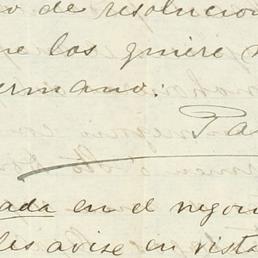 o de resolucio
e los quiere
ermano:
Pa
ada en el negoci
les avise en vista